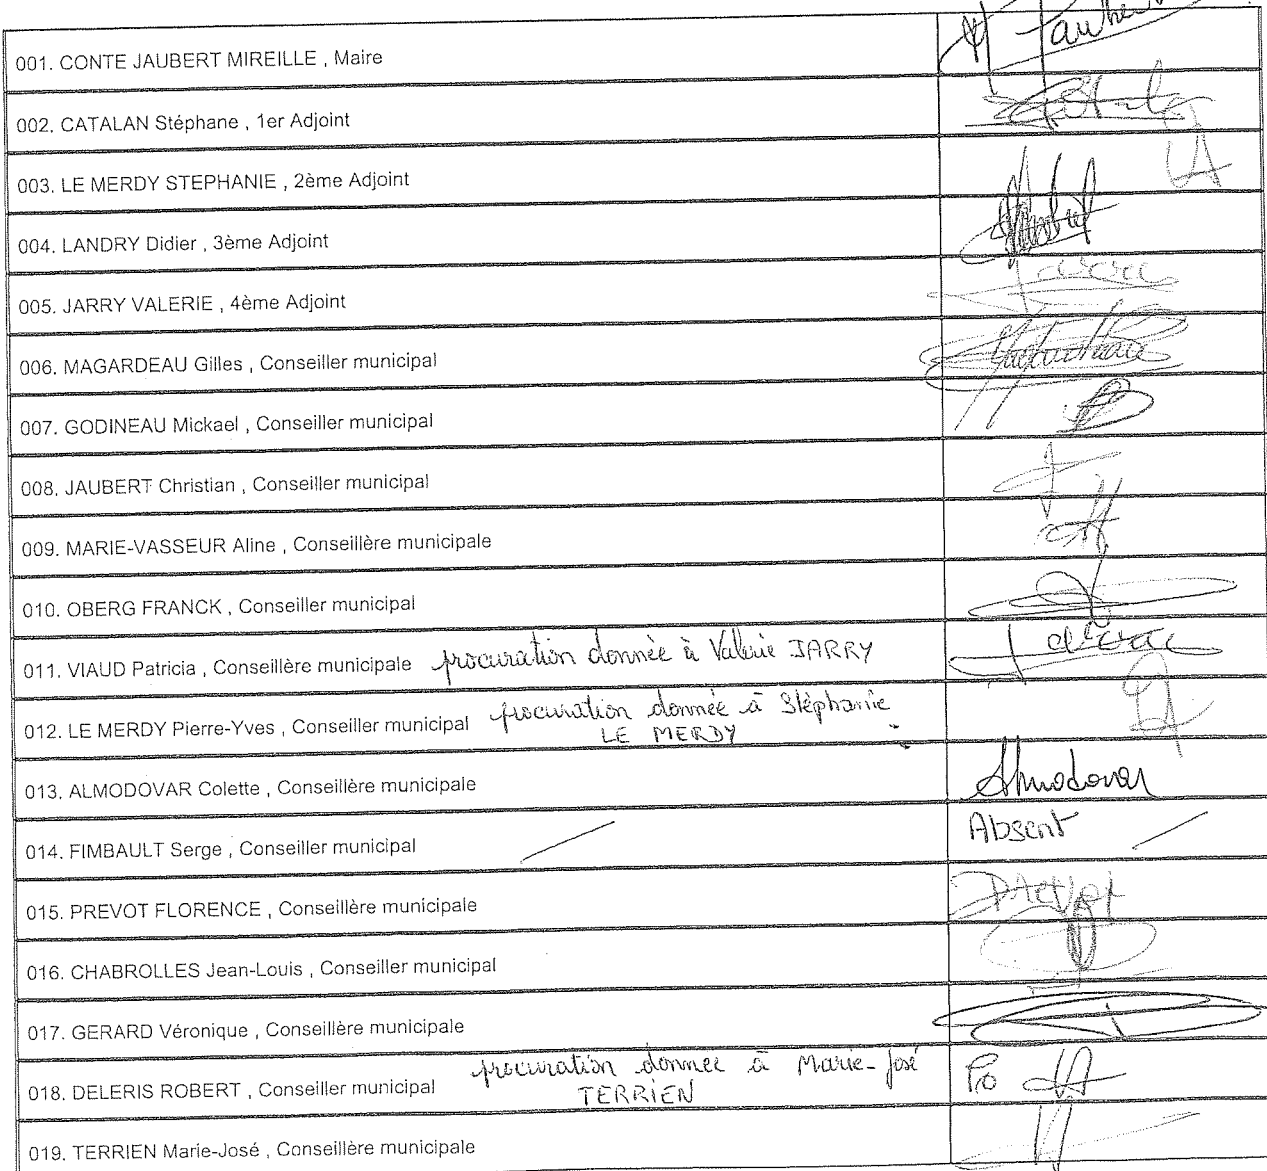 001. CONTE JAUBERT MIREILLE , Maire
Jaubert
002. CATALAN Stéphane , 1er Adjoint
003. LE MERDY STEPHANIE , 2ème Adjoint
004. LANDRY Didier , 3ème Adjoint
005. JARRY VALERIE , 4ème Adjoint
006. MAGARDEAU Gilles , Conseiller municipal
007. GODINEAU Mickael , Conseiller municipal
008. JAUBERT Christian , Conseiller municipal
009. MARIE-VASSEUR Aline , Conseillère municipale
010. OBERG FRANCK , Conseiller municipal
011. VIAUD Patricia , Conseillère municipale procuration donnée à Valérie JARRY
012. LE MERDY Pierre-Yves , Conseiller municipal procuration donnée à Stéphanie
LE MERDY
013. ALMODOVAR Colette , Conseillère municipale Almodovar
014. FIMBAULT Serge , Conseiller municipal / Absent /
015. PREVOT FLORENCE , Conseillère municipale Prevot
016. CHABROLLES Jean-Louis , Conseiller municipal
017. GERARD Véronique , Conseillère municipale
018. DELERIS ROBERT , Conseiller municipal procuration donnée à Marie-José Po
TERRIEN
019. TERRIEN Marie-José , Conseillère municipale